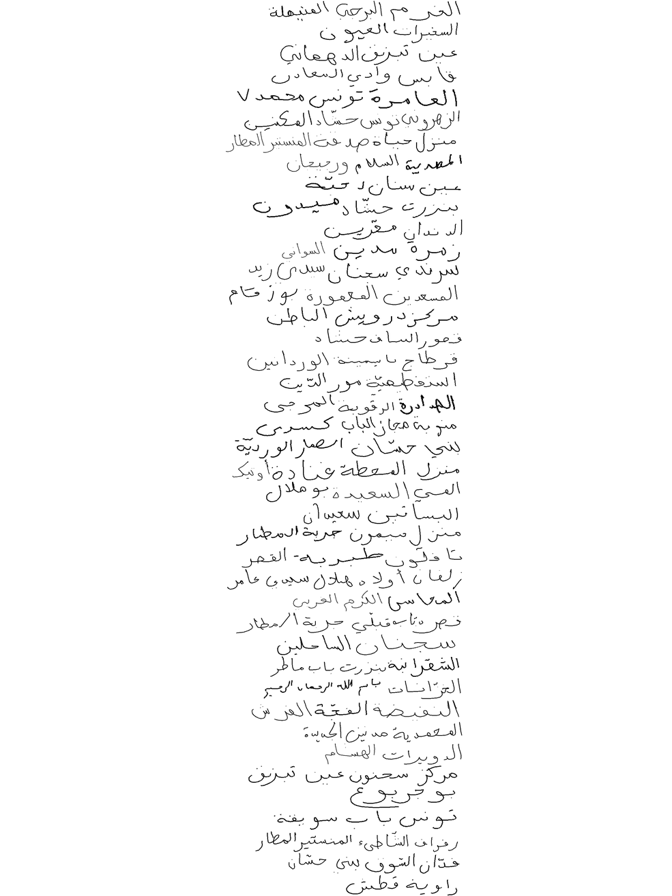 الخريم البرجي المنيهلة
السفيرات العيون
عين تبرنق الدهماني
قابس وادي السعادن
العامرة تونس محمد ٧
الزهروني تونس حشاد المكنين
منزل حياة صدقت المنستير المطار
المصدرية السلام ورجيعان
عين سنان رحتة
بنزرت حشاد ميدون
الدندان مقرين
زمرة مدين السواني
سرندي سجنان سيدي زيد
المسعدين المعمورة بوزقام
مركز درويش الباطن
قصور الساف حشاد
قرطاج ياسمينة الوردانين
اسنفطهيّة مور الدّيت
الهدادرة الرقوبة المرجى
منوبة مجاز الباب كسرى
بني حسّان انصار الورديّة
منزل المحطة غنادة أوتيك
الفيء السعيدة بوهلال
البساتين سعيدان
منزل ميمون جربة المطار
تاكلون طبربة القصر
زلفان أولاد هلال سيدي عامر
المحاسن الكرم الغربي
قصر قبلي جربة المطار
سجنان الساحلين
الشقرانية بنزرت باب ماطر
الخزّانات باسم الله الرحمان الرحيم
النفيضة الفجّة الفرش
المحمدية مدنين الجديدة
الدويرات الهشام
مركز سحنون عين تبرنق
بوجربوع
تونس باب سويقة
رفراف الشّاطىء المنستير المطار
فدّان السّوق بني حسّان
راوية قطيش